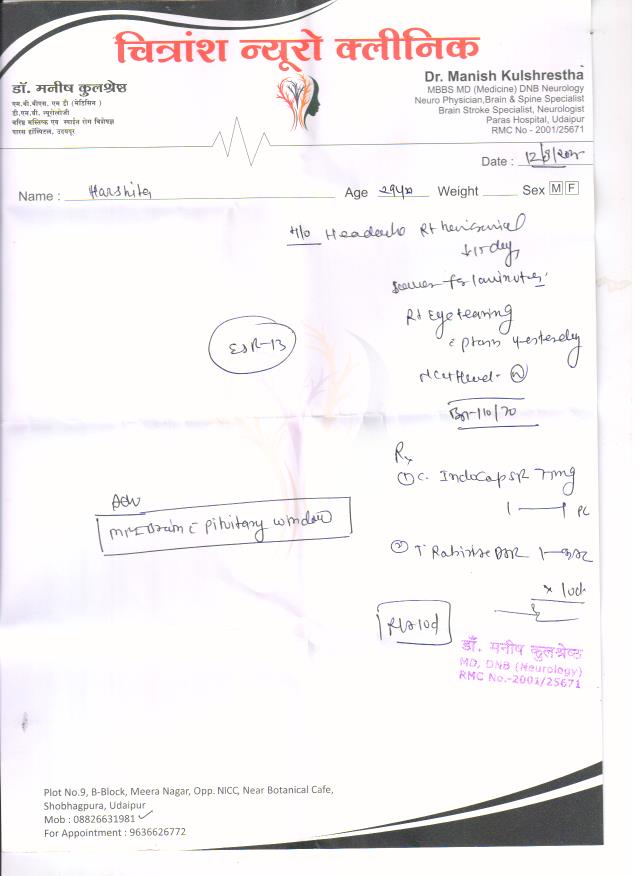 चित्रांश न्यूरो क्लीनिक
डॉ. मनीष कुलश्रेष्ठ
एम.बी.बीएस. एम डी (मेडिसिन)
डी.एन.बी. न्यूरोलॉजी
वरिष्ठ मस्तिष्क एवं स्पाईन रोग विशेषज्ञ
पारस हॉस्पिटल, उदयपुर
Dr. Manish Kulshrestha
MBBS MD (Medicine) DNB Neurology
Neuro Physician,Brain & Spine Specialist
Brain Stroke Specialist, Neurologist
Paras Hospital, Udaipur
RMC No - 2001/25671
Date :
Name : Harshita Age 29 Weight Sex M F
H/o Headache Rt
Rt Eye tearing
yesterday
ESR-13
NCCT Head - N
BP-110/70
Rx
① C. Indocap SR 75mg
1 1 PC
Adv
MRI Brain c Pituitary window
② T DSR 1
x 10d
R/w 10d
डॉ. मनीष कुलश्रेष्ठ
MD, DNB (Neurology)
RMC No.-2001/25671
Plot No.9, B-Block, Meera Nagar, Opp. NICC, Near Botanical Cafe,
Shobhagpura, Udaipur
Mob : 08826631981
For Appointment : 9636626772